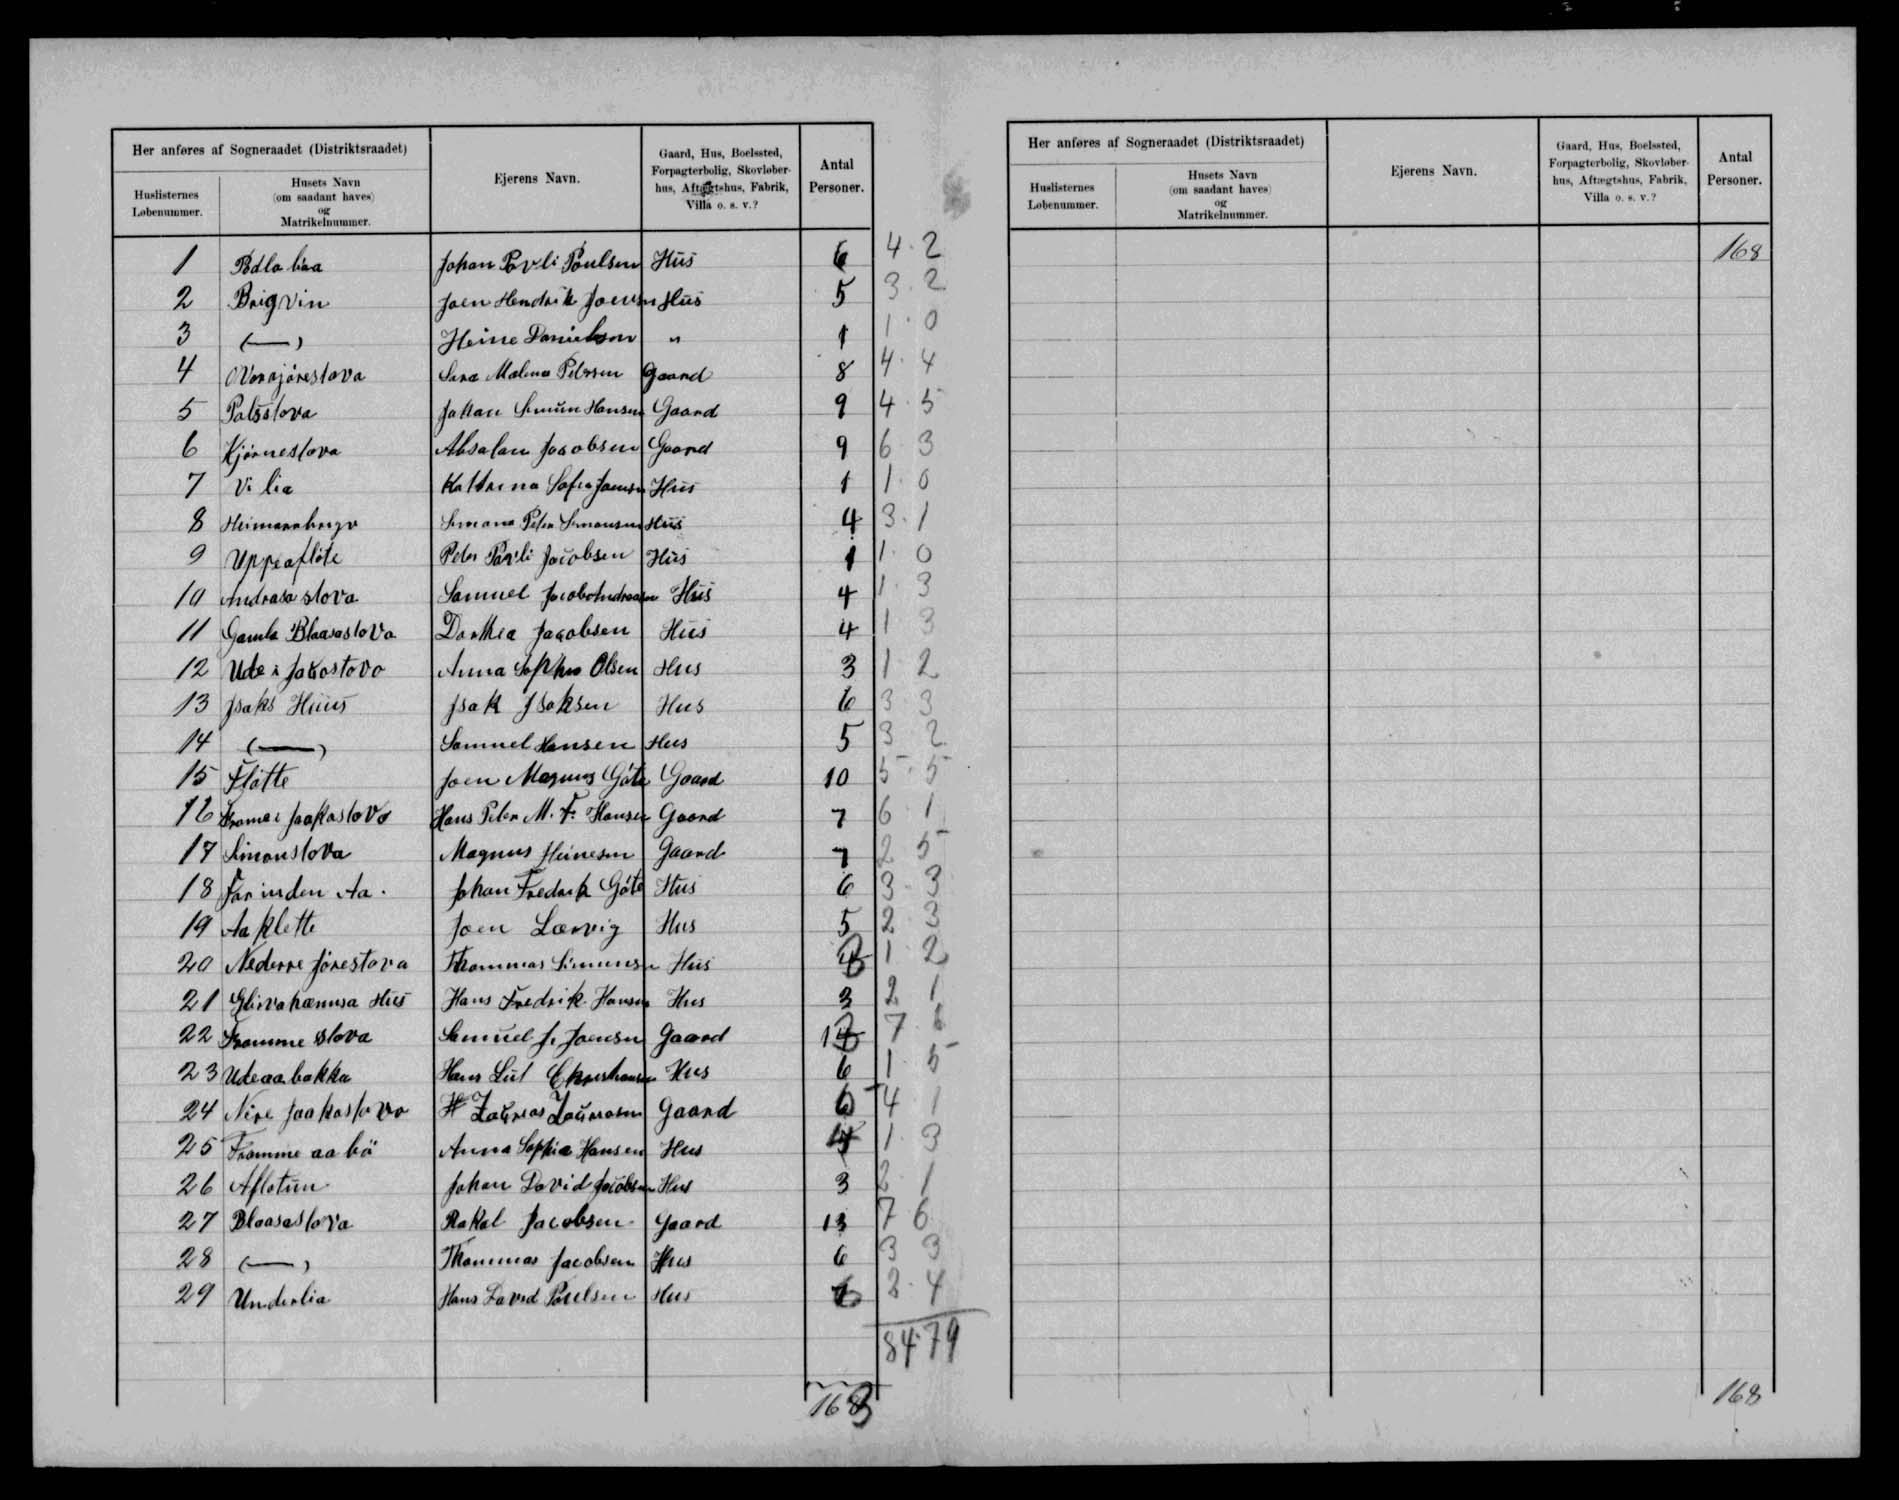 Her anføres af Sogneraadet (Distriktsraadet)
Huslisternes Løbenummer.
Husets Navn (om saadant haves) og Matrikelnummer.
Ejerens Navn.
Gaard, Hus, Boelssted, Forpagterbolig, Skovløberhus, Aftægtshus, Fabrik, Villa o. s. v.?
Antal Personer.
1 Johan Povli Poulsen Hús 6 4·2
2 Brigvin Joen Hendrik Joensen Hús 5 3·2
3 (—) Heine Danielsen " 1 1·0
4 Sara Malena Petersen Gaard 8 4·4
5 Johan Simún Hansen Gaard 9 4·5
6 Kjørnestova Absalon Jacobsen Gaard 9 6 3
7 Vi lia Kattrina Sofia Joensen Hus 1 1·0
8 Simona Peter Simonsen Hús 4 3·1
9 Peter Povli Jacobsen Hús 1 1·0
10 Andrasa stova Samuel Jacob Andreasen Hús 4 1·3
11 Gamla Blaasastova Dorthea Jacobsen Hús 4 1 3
12 Ude i Jakastovo Anna Sophia Olsen Hus 3 1 2
13 Isaks Húus Isak Isaksen Hus 6 3 3
14 (—) Samuel Hansen Hus 5 3 2
15 Fløtte Joen Magnus Gøte Gaard 10 5·5
16 Hans Peter M. F. Hansen Gaard 7 6 1
17 Simonstova Magnus Heinesen Gaard 7 2 5
18 Johan Fredrik Gøte Hus 6 3·3
19 Aa Klette Joen Lervig Hus 5 2 3
20 Nederre Jørestova Thommas Simonsen Hus 3 1·2
21 Hans Fredrik Hansen Hus 3 2 1
22 Framme stova Samúel J. Joensen Gaard 13 7·6
23 Ude aa bakka Hans Christiansen Hus 6 1·5
24 Nire Jaakastovo Gaard 5 4 1
25 Framme aa bø Anna Sophia Hansen Hus 4 1·3
26 Aflotún Johan David Jacobsen Hus 3 2·1
27 Blaasastova Rakal Jacobsen Gaard 13 7 6
28 (—) Thommas Jacobsen Hus 6 3 3
29 Underlia Hans David Poulsen Hus 6 2·4
84·79
163
Her anføres af Sogneraadet (Distriktsraadet)
Huslisternes Løbenummer.
Husets Navn (om saadant haves) og Matrikelnummer.
Ejerens Navn.
Gaard, Hus, Boelssted, Forpagterbolig, Skovløberhus, Aftægtshus, Fabrik, Villa o. s. v.?
Antal Personer.
168
168